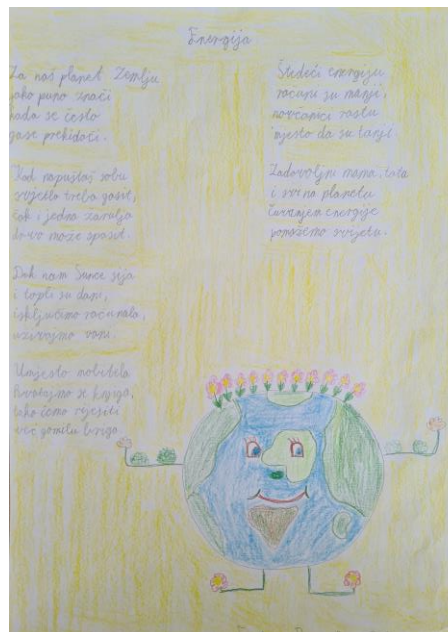 Energija
Za naš planet Zemlju
jako puno znači
kada se često
gase prekidači.
Kad napuštaš sobu
svjetlo treba gasit,
čak i jedna žarulja
drvo može spasit.
Dok nam Sunce sija
i topli su dani,
isključimo računala,
uživajmo vani.
Umjesto mobitela
hvatajmo se knjiga,
tako ćemo riješiti
već gomilu briga.
Štedeći energiju
računi su manji,
novčanici rastu
mjesto da su tanji.
Zadovoljni mama, tata
i svi na planetu
čuvanjem energije
pomažemo svijetu.